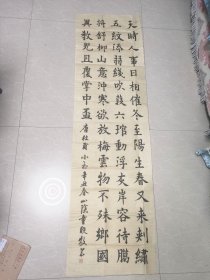 天時人事日相催冬至陽生春又來刺繡
五紋添弱綫吹葭六琯動浮灰岸容待臘
將舒柳山意沖寒欲放梅雲物不殊鄉國
異教兒且覆掌中杯
唐杜甫小至辛丑春